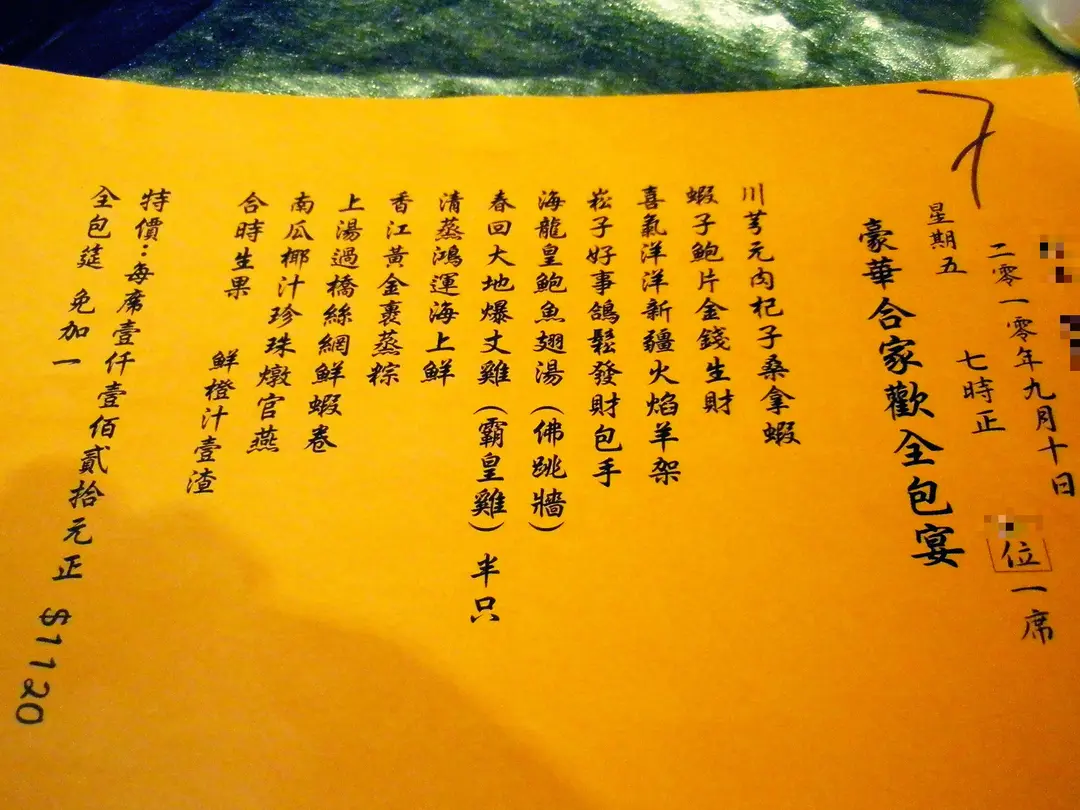 二零一零年九月十日
星期五
七時正
位一席
豪華合家歡全包宴
川芎元肉杞子桑拿蝦
蝦子鮑片金錢生財
喜氣洋洋新疆火焰羊架
崧子好事鴿鬆發財包手
海龍皇鮑魚翅湯(佛跳牆)
春回大地爆丈雞(霸皇雞)半只
清蒸鴻運海上鮮
香江黃金裹蒸粽
上湯過橋絲網鮮蝦卷
南瓜椰汁珍珠燉官燕
合時生果
鮮橙汁壹渣
特價:每席壹仟壹佰貳拾元正 $1120
全包筵 免加一